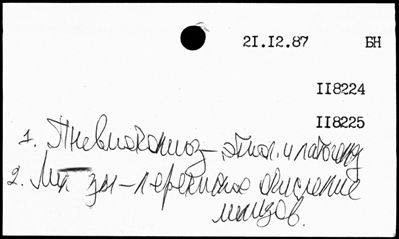 21.12.87 БН
II8224
II8225
1. Пневмокониоз – этиол. и патогенез
2. Липиды – перекисное окисление
липидов.